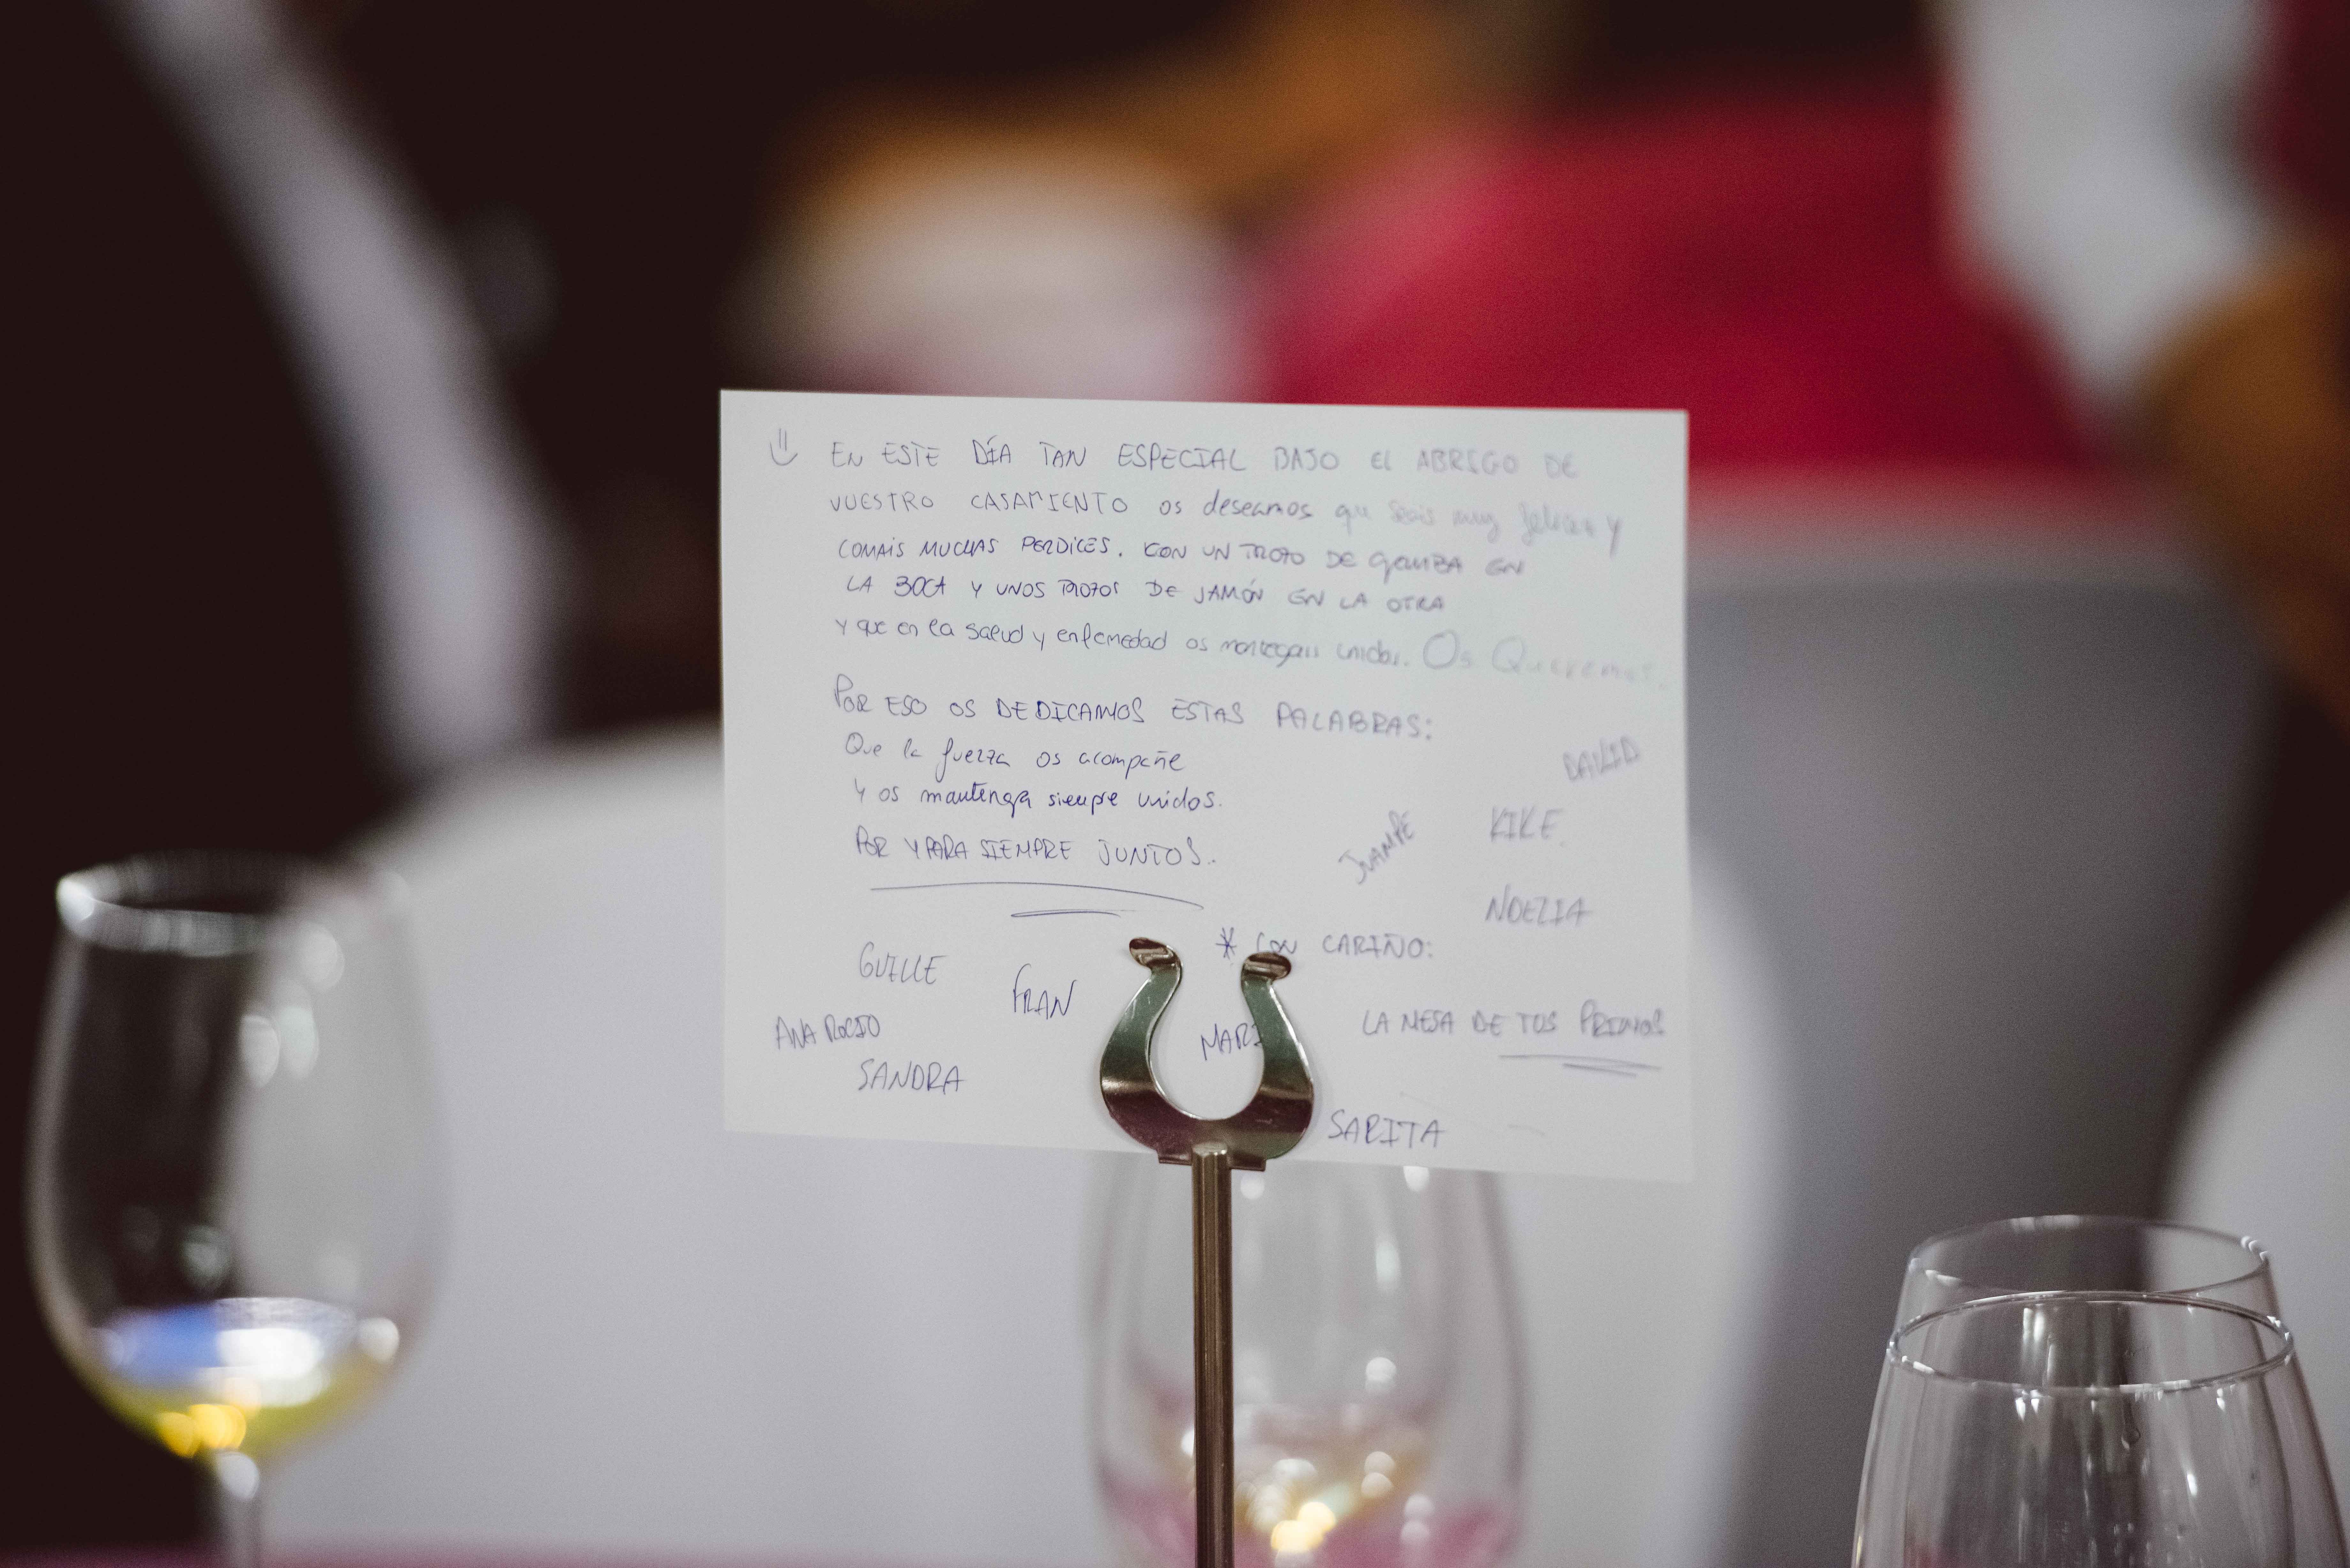 EN ESTE DÍA TAN ESPECIAL BAJO EL ABRIGO DE
VUESTRO CASAMIENTO os deseamos que seais muy felices y
COMAIS MUCHAS PERDICES. CON UN TROZO DE GAMBA EN
LA BOCA Y UNOS TROZOS DE JAMÓN EN LA OTRA
Y que en la salud y enfermedad os mantegais unidos. Os Queremos.
POR ESO OS DEDICAMOS ESTAS PALABRAS:
Que la fuerza os acompañe
Y os mantenga siempre unidos.
POR Y PARA SIEMPRE JUNTOS..
DAVID
JUANPE
KIKE
NOELIA
* CON CARIÑO:
GUILLE
FRAN
ANA ROCIO
MARI
LA MESA DE TUS PRIMOS
SANDRA
SARITA